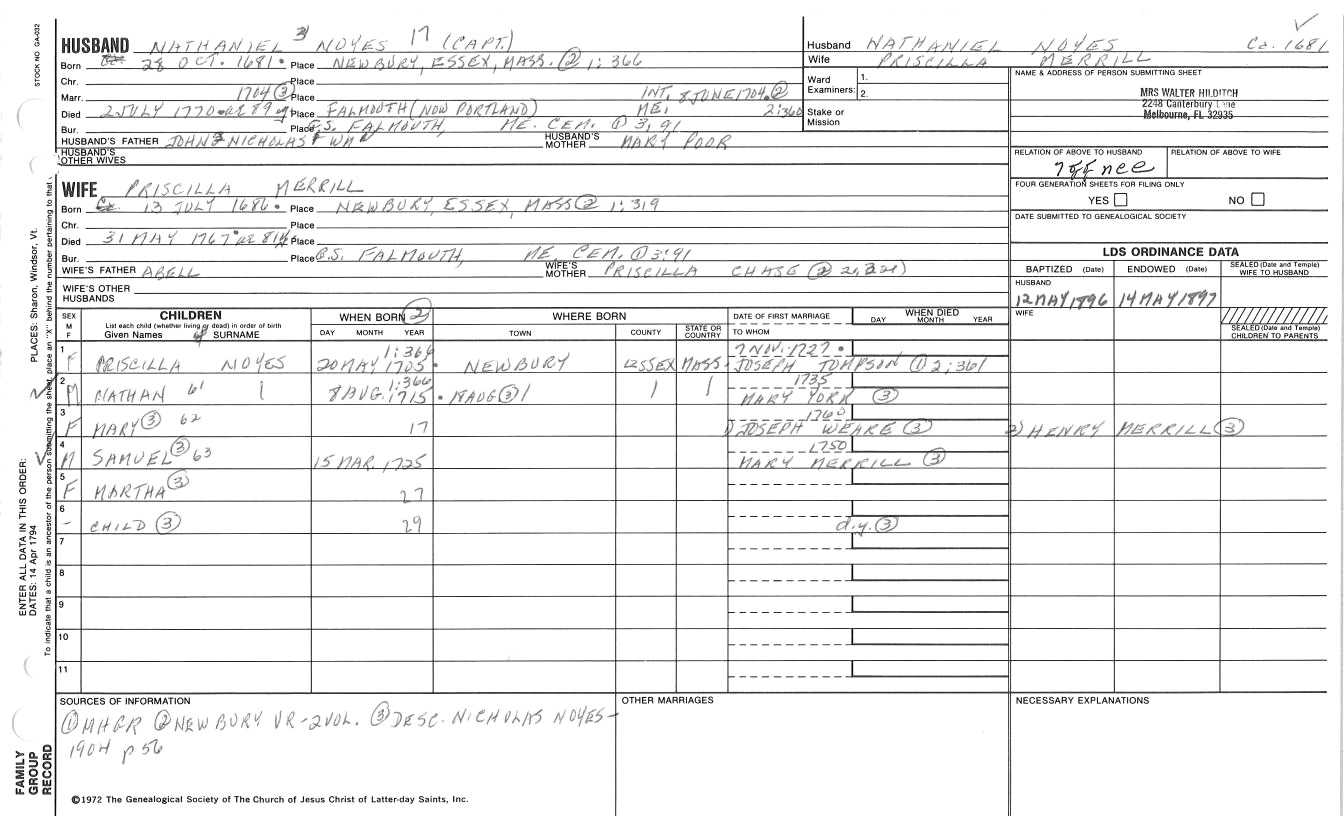 STOCK NO GA-032
HUSBAND NATHANIEL 3 NOYES 17 (CAPT.)
Born 28 OCT. 1681. Place NEWBURY, ESSEX, MASS. ② 1:366
Chr. Place
Marr. 1704 ③ Place INT. 8 JUNE 1704. ②
Died 2 JULY 1770. AE 89 Place FALMOUTH (NOW PORTLAND) ME. 2:360
Bur. Place G.S. FALMOUTH, ME. CEM. ① 3,91
HUSBAND'S FATHER JOHN 2 NICHOLAS 1 WM HUSBAND'S MOTHER MARY POOR
HUSBAND'S OTHER WIVES
Husband NATHANIEL NOYES Ca. 1681
Wife PRISCILLA MERRILL
Ward Examiners: 1. 2.
Stake or Mission
NAME & ADDRESS OF PERSON SUBMITTING SHEET
MRS WALTER HILDITCH
2248 Canterbury Lane
Melbourne, FL 32935
RELATION OF ABOVE TO HUSBAND RELATION OF ABOVE TO WIFE
FOUR GENERATION SHEETS FOR FILING ONLY
YES NO
DATE SUBMITTED TO GENEALOGICAL SOCIETY
WIFE PRISCILLA MERRILL
Born Ca. 13 JULY 1686. Place NEWBURY, ESSEX, MASS ② 1:319
Chr. Place
Died 31 MAY 1767. AE 81 Place
Bur. Place G.S. FALMOUTH, ME. CEM. ① 3:91
WIFE'S FATHER ABELL WIFE'S MOTHER PRISCILLA CHASE (②
WIFE'S OTHER HUSBANDS
LDS ORDINANCE DATA
BAPTIZED (Date) ENDOWED (Date) SEALED (Date and Temple) WIFE TO HUSBAND
HUSBAND
12 MAY 1896 14 MAY 1897
WIFE
SEALED (Date and Temple) CHILDREN TO PARENTS
SEX M F CHILDREN List each child (whether living or dead) in order of birth Given Names SURNAME
WHEN BORN ② DAY MONTH YEAR
WHERE BORN TOWN COUNTY STATE OR COUNTRY
DATE OF FIRST MARRIAGE TO WHOM
WHEN DIED DAY MONTH YEAR
1 F PRISCILLA NOYES 1:366 20 MAY 1705 NEWBURY ESSEX MASS. 7 NOV. 1727. JOSEPH TOMPSON ① 2:361
2 M NATHAN 61 1:366 8 AUG. 1715. 18 AUG ③ 1735 MARY YORK ③
3 F MARY ③ 62 17 1760 1) JOSEPH WEARE ③ 2) HENRY MERRILL ③
4 M SAMUEL ③ 63 15 MAR. 1725 1750 MARY MERRILL ③
5 F MARTHA ③ 27
6 - CHILD ③ 29 d.y. ③
7
8
9
10
11
SOURCES OF INFORMATION
① MHGR ② NEWBURY VR-2VOL. ③ DESC. NICHOLAS NOYES-
1904 p 56
OTHER MARRIAGES
NECESSARY EXPLANATIONS
©1972 The Genealogical Society of The Church of Jesus Christ of Latter-day Saints, Inc.
ENTER ALL DATA IN THIS ORDER:
DATES: 14 Apr 1794
PLACES: Sharon, Windsor, Vt.
To indicate that a child is an ancestor of the person submitting the sheet, place an "X" behind the number pertaining to that
FAMILY
GROUP
RECORD